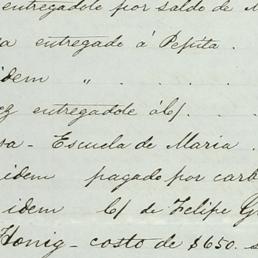 entregadole por saldo de M
a entregado á Pepita .
idem " . . . . .
ez entregadole á b/. . . .
sa - Escuela de Maria .
idem pagado por carb
idem b/ de Felipe G
Honig - costo de $650. s